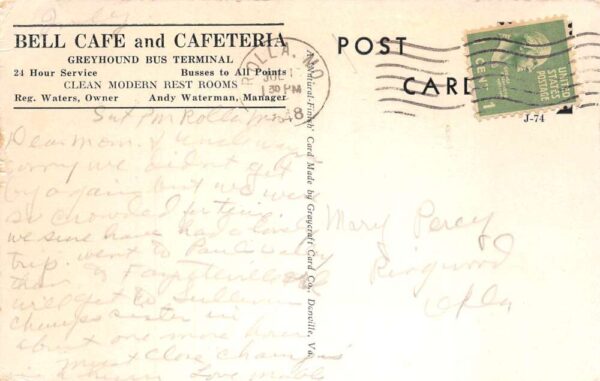 BELL CAFE and CAFETERIA
GREYHOUND BUS TERMINAL
24 Hour Service Busses to All Points
CLEAN MODERN REST ROOMS
Reg. Waters, Owner Andy Waterman, Manager
ROLLA, MO.
1 30 PM
POST
CARD
UNITED
STATES
POSTAGE
1 CENT 1
J-74
A 'Natural-Finish' Card Made by Graycraft Card Co., Danville, Va.
Sat Pm Rolla Mo
Dear Mom &
sorry we didnt get
by again but we were
so crowded for time.
we sure have had a lovely
trip. went to Pauls Valley
then to Fayetteville
will get to Sullivan
sister in
about one more hour
Must Close
Love
Mary Percy
Ringwood
Okla